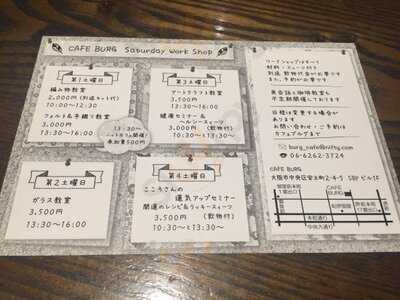 CAFE BURG Saturday Work Shop
第1土曜日
編み物教室
2,000円(別途キット代)
10:00〜12:30
フォルト&手織り教室
3,000円
13:30〜16:00
13:30〜
参加費500円
第3土曜日
アートクラフト教室
3,500円
13:30〜16:00
健康セミナー&
ヘルシースィーツ
3,000円 (飲物付)
10:30〜と13:30〜
第2土曜日
ガラス教室
3,500円
13:30〜16:00
第4土曜日
こころさんの
運気アップセミナー
開運のレシピ&ラッキースィーツ
3,500円 (飲物付)
10:30〜と13:30〜
ワークショップはすべて
材料・ミューズ付き
別途 飲物代金が必要です
また、予約が必要です
英会話と珈琲教室も
不定期開催しております
日程は変更する場合が
あります
お問い合わせ・ご予約は
カフェブルグまで
burg_cafe@nifty.com
06-6262-3724
CAFE BURG
大阪市中央区安土町2-4-5 SBPビル1F
CAFE
BURG
本町通り
中央大通り